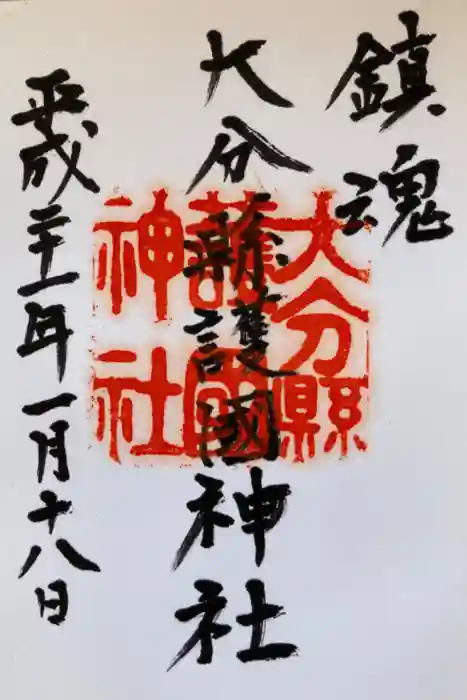 鎮魂
大分縣護國神社
平成二十一年一月十八日
大分縣護國神社